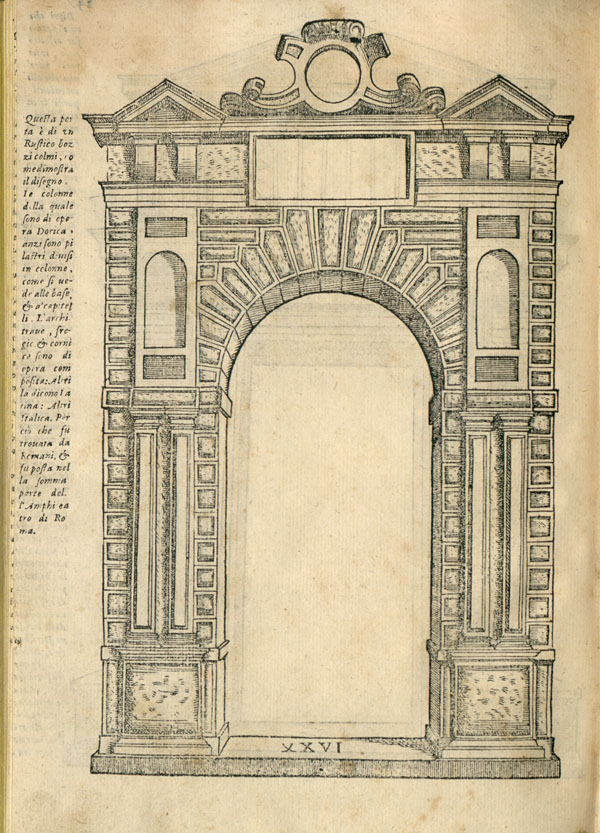 Questa por
ta è di un
Rustico boz
zi colmi, co
me dimostra
il disegno.
le colonne
della quale
sono di ope
ra Dorica,
anzi sono pi
lastri divisi
in colonne,
come si ve-
de alle base,
& a' capitel
li. L'archi
trave, fre
gio, & corni
ce sono di
opera com
posita: Altri
la dicono La
tina: Altri
Italica. Per
ciò che fu
trovata da
Romani, &
fu posta nel
la somma
parte del-
l'Amphitea
tro di Ro
ma.
XXVI